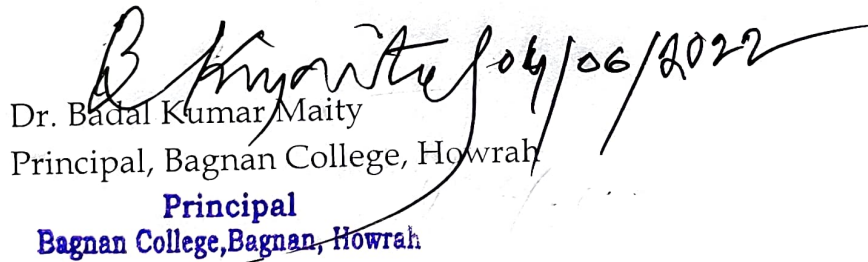 B Kmaity 04/06/2022
Dr. Badal Kumar Maity
Principal, Bagnan College, Howrah
Principal
Bagnan College,Bagnan, Howrah